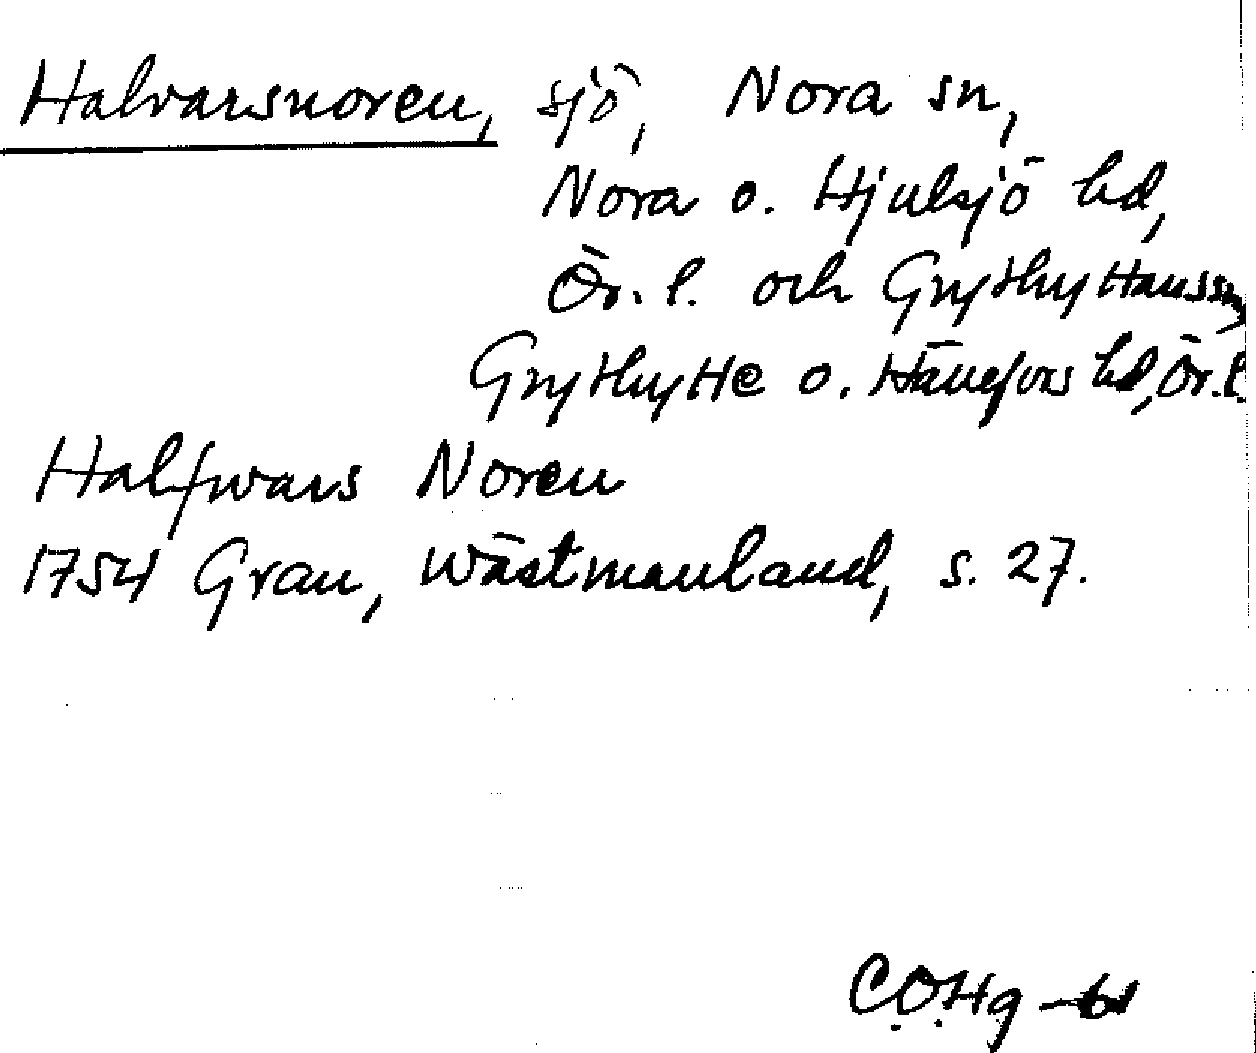 Halvarsnoren, sjö, Nora sn,
Nora o. Hjulsjö hd,
Ör. l. och Grythyttans sn,
Grythytte o. Hällefors hd, Ör. l.
Halfwars Noren
1754 Grau, Wästmanland, s. 27.
C.O.Hg -61